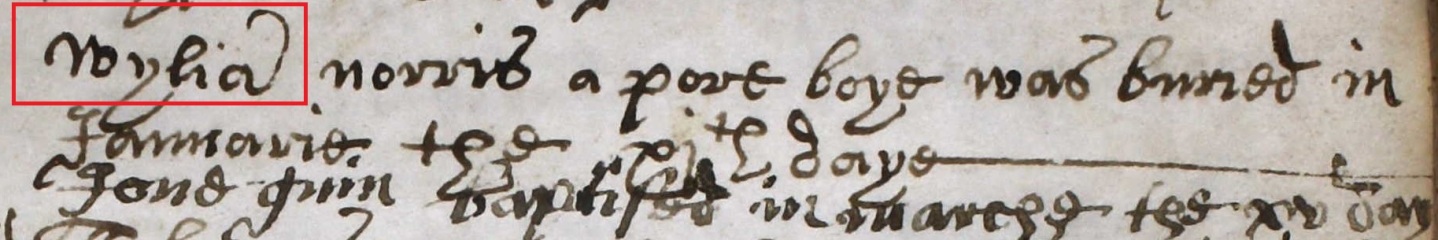 Wyliā norris a pore boye was buried in
Januarie the xjth daye
Jone quin baptised in marche the xv day